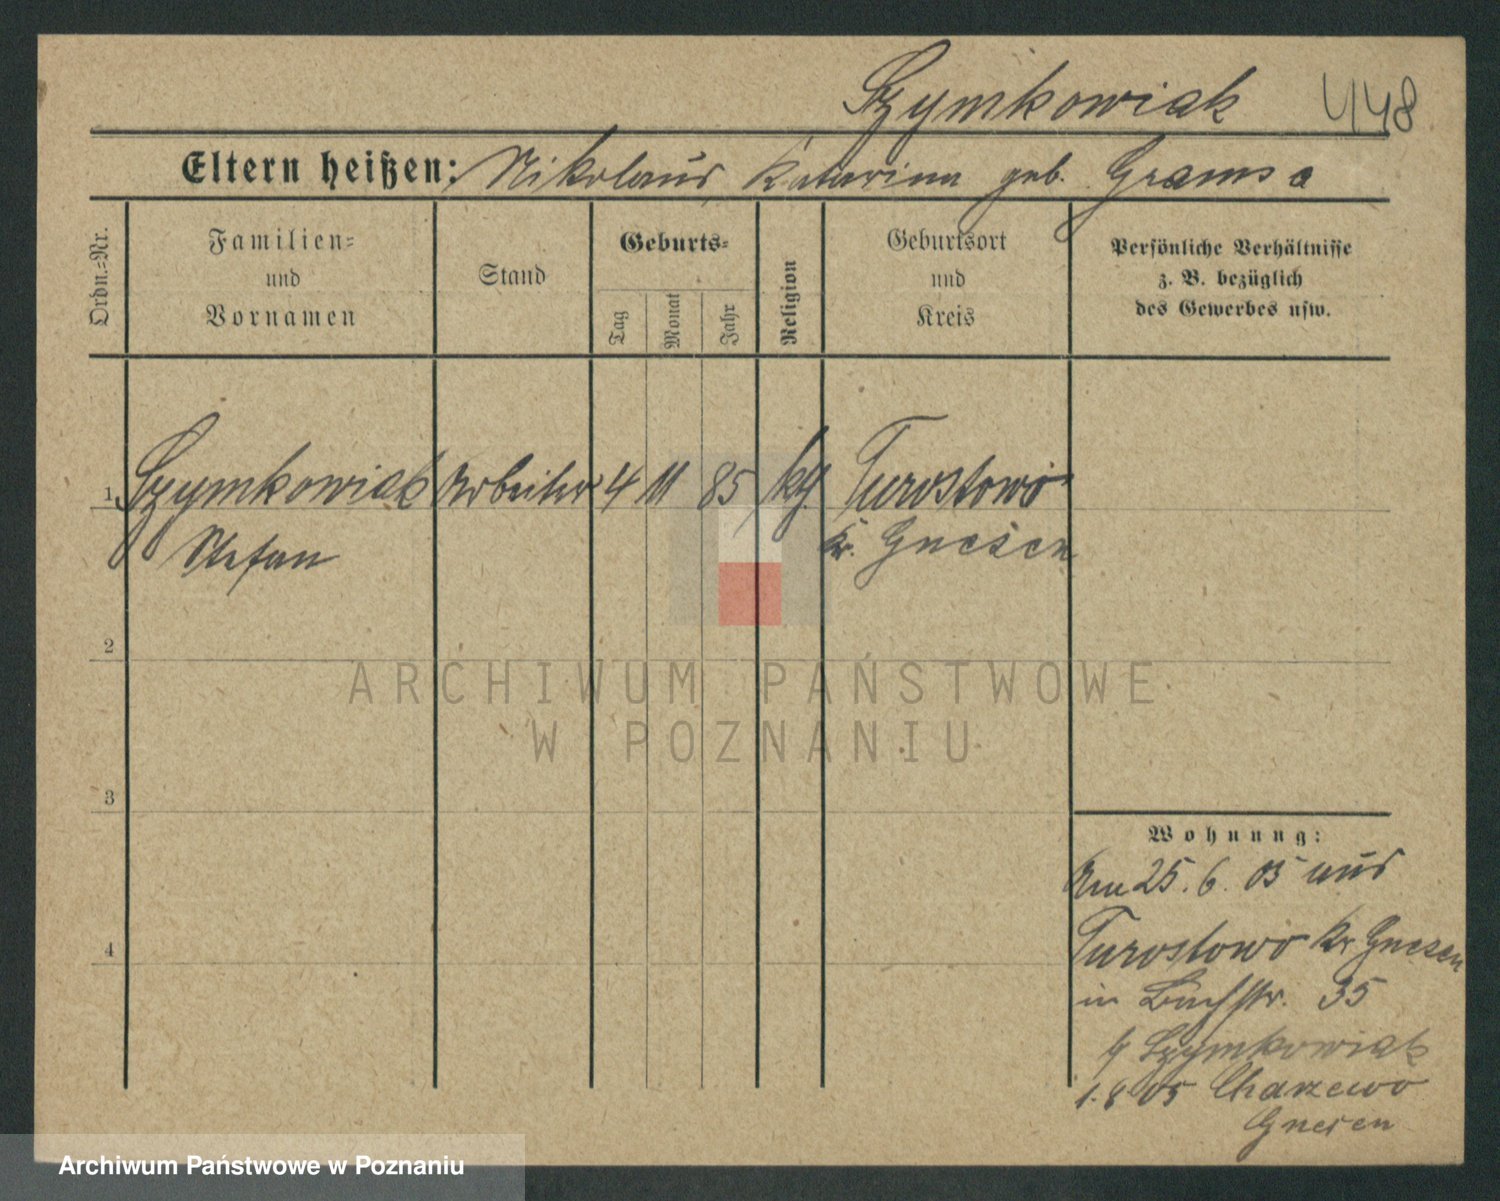 Szymkowiak 448
Eltern heißen: Nikolaus Katarina geb. Gramsa
Ordn.=Nr.
Familien=
und
Vornamen
Stand
Geburts=
Tag
Monat
Jahr
Religion
Geburtsort
und
Kreis
Persönliche Verhältnisse
z. B. bezüglich
des Gewerbes usw.
1 Szymkowiak Arbeiter 4 11 85 kg. Turostowo
Stefan Kr. Gnesen
2
3
4
Wohnung:
Am 25. 6. 05 aus
Turostowo Kr Gnesen
in Buchstr. 35
Szymkowiak
1.8 05 Charzewo
Gnesen
ARCHIWUM PAŃSTWOWE
W POZNANIU
Archiwum Państwowe w Poznaniu